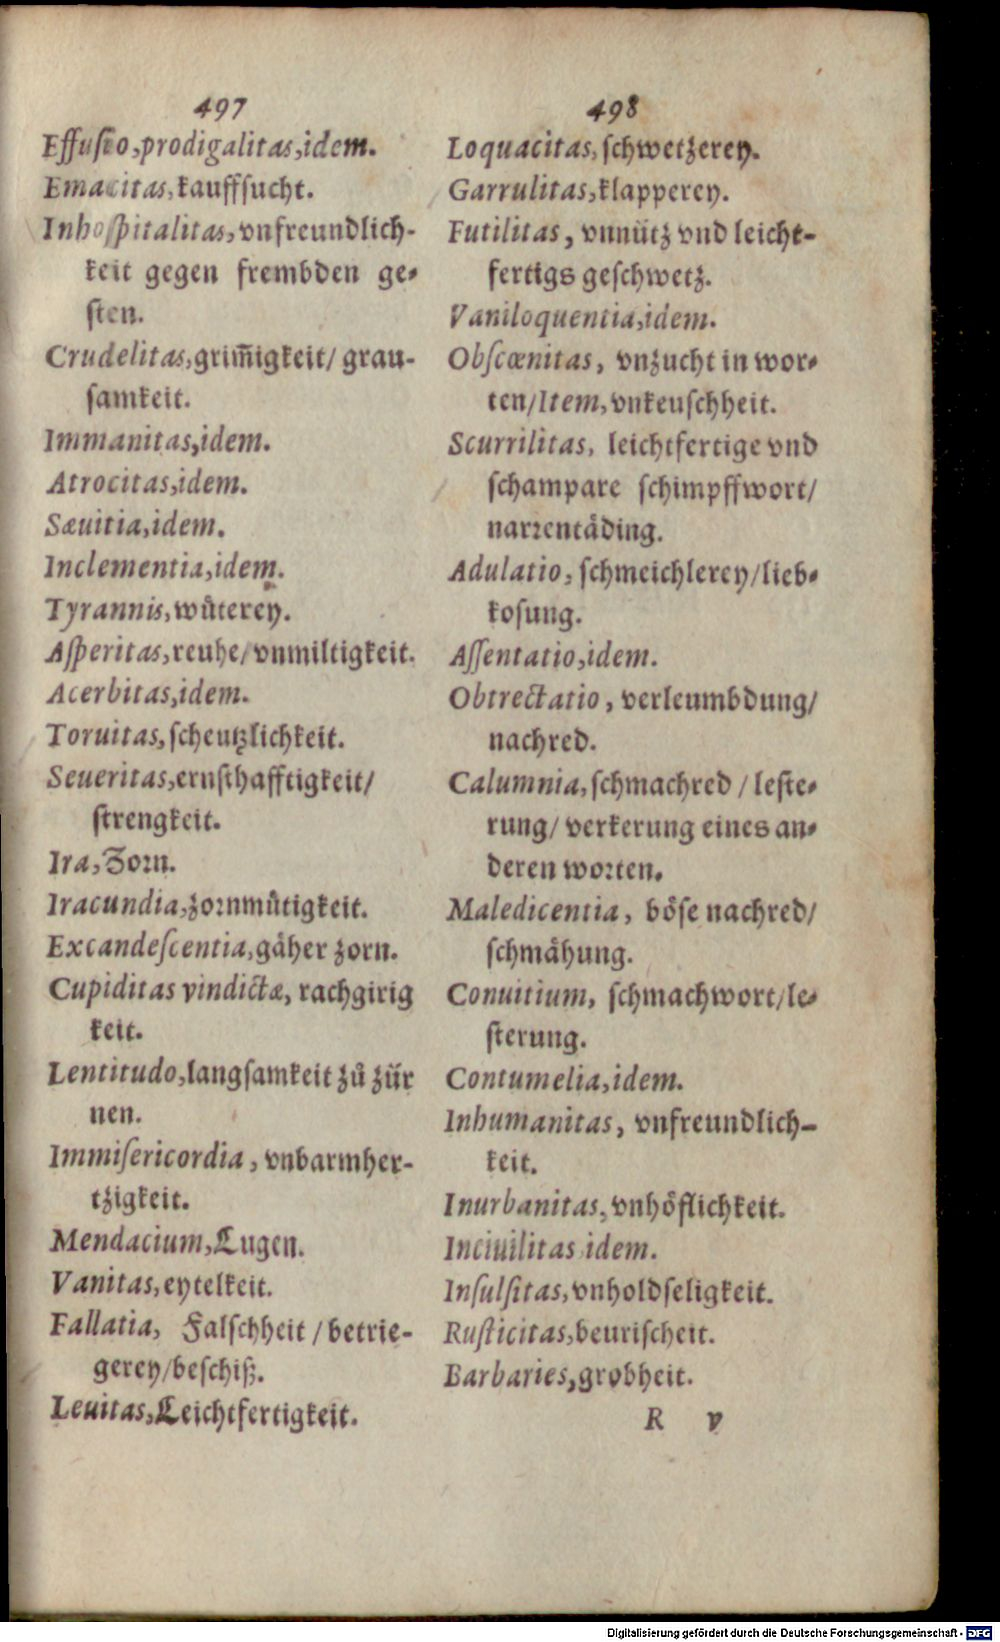 497
Effusio, prodigalitas, idem.
Emacitas, kauffsucht.
Inhoſpitalitas, vnfreundlich-
keit gegen frembden ge-
ſten.
Crudelitas, grim̃igkeit/ grau-
ſamkeit.
Immanitas, idem.
Atrocitas, idem.
Sæuitia, idem.
Inclementia, idem.
Tyrannis, wuͤterey.
Aſperitas, reuhe/ vnmiltigkeit.
Acerbitas, idem.
Toruitas, ſcheutzlichkeit.
Seueritas, ernſthafftigkeit/
ſtrengkeit.
Ira, Zorn.
Iracundia, zornmuͤtigkeit.
Excandeſcentia, gaͤher zorn.
Cupiditas vindictæ, rachgirig
keit.
Lentitudo, langſamkeit zuͦ zuͤr
nen.
Immiſericordia, vnbarmher-
tzigkeit.
Mendacium, Lugen.
Vanitas, eytelkeit.
Fallatia, Falſchheit / betrie-
gerey/beſchiß.
Leuitas, Leichtfertigkeit.
498
Loquacitas, ſchwetzerey.
Garrulitas, klapperey.
Futilitas, vnnuͤtz vnd leicht-
fertigs geſchwetz.
Vaniloquentia, idem.
Obſcœnitas, vnzucht in wor-
ten/Item, vnkeuſchheit.
Scurrilitas, leichtfertige vnd
ſchampare ſchimpffwort/
narrentaͤding.
Adulatio, ſchmeichlerey/lieb-
koſung.
Aſſentatio, idem.
Obtrectatio, verleumbdung/
nachred.
Calumnia, ſchmachred / leſte-
rung/ verkerung eines an-
deren worten.
Maledicentia, boͤſe nachred/
ſchmaͤhung.
Conuitium, ſchmachwort/le-
ſterung.
Contumelia, idem.
Inhumanitas, vnfreundlich-
keit.
Inurbanitas, vnhoͤflichkeit.
Inciuilitas idem.
Inſulſitas, vnholdſeligkeit.
Ruſticitas, beuriſcheit.
Barbaries, grobheit.
R v
Digitalisierung gefördert durch die Deutsche Forschungsgemeinschaft - DFG